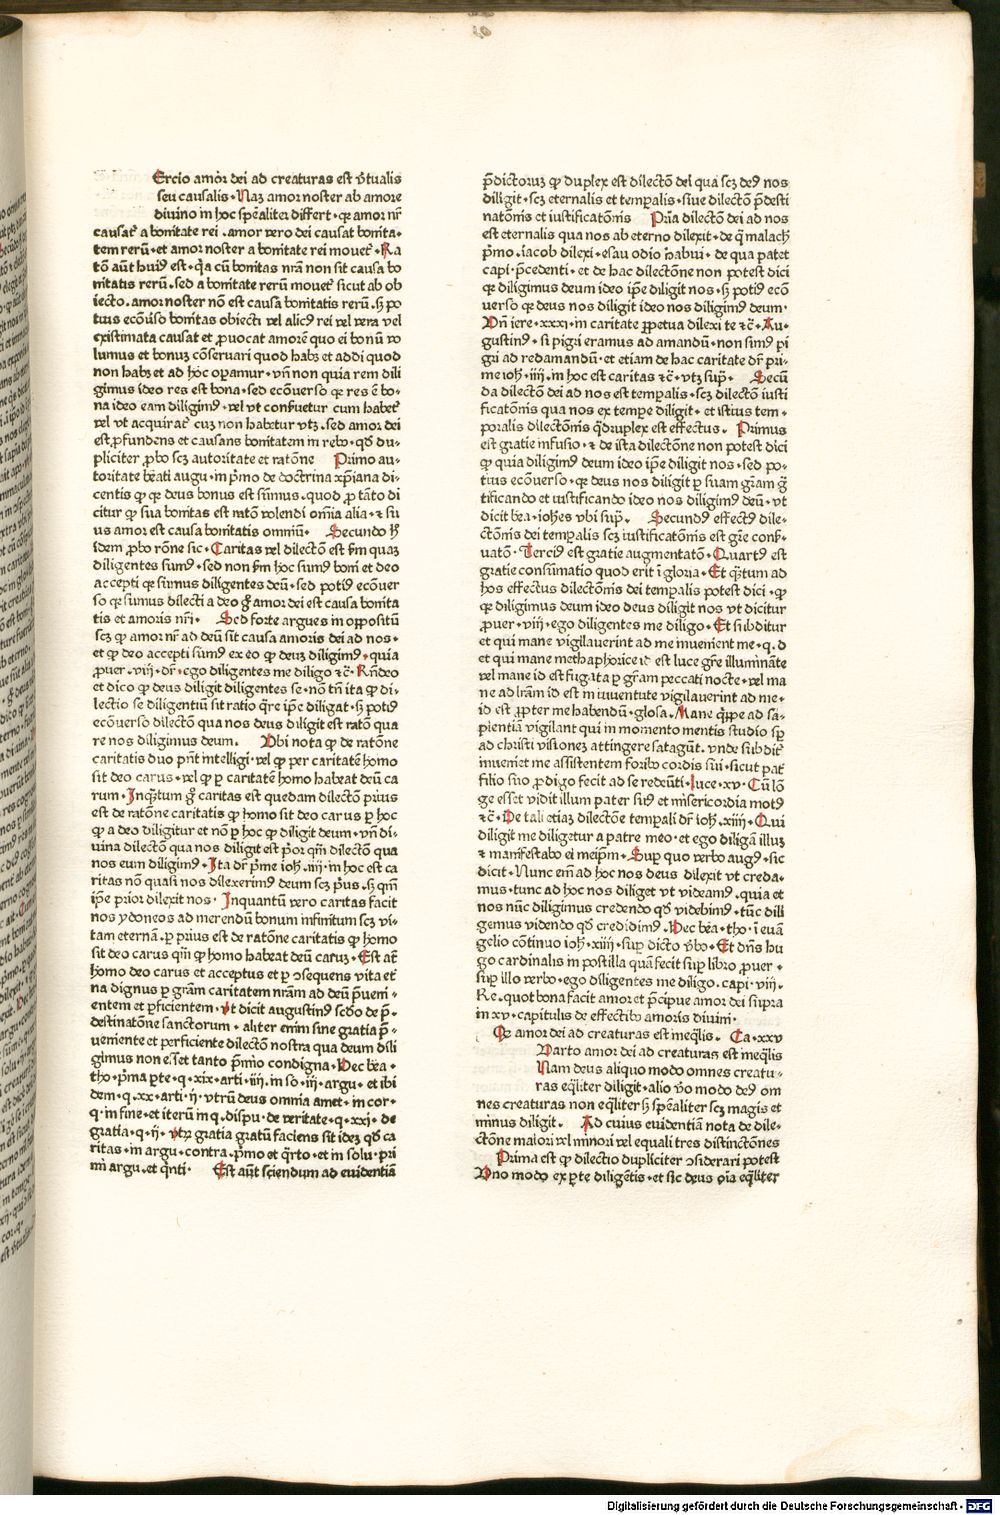 Ercio amor dei ad creaturas est v̓tualis
seu causalis · Naz amor noster ab amore
diuino in hoc sp̄ealiter differt · qꝛ amor nr̄
causat᷑ a bonitate rei · amor vero dei causat bonita-
tem rerū · et amor noster a bonitate rei mouet᷑ · Ra
tō aūt huiꝰ est · qꝛa cū bonitas nr̄a non sit causa bo
nitatis rerū · sed a bonitate rerū mouet᷑ sicut ab ob
iecto · amor noster nō est causa bonitatis rerū · sꝫ po
tius ecōuso bonitas obiecti vel alicꝰ rei vel vera vel
existimata causat et ꝓuocat amorē quo ei bonū vo
lumus et bonuz cōseruari quod habꝫ et addi quod
non habꝫ et ad hoc opamur · vn̄ non quia rem dili
gimus ideo res est bona · sed ecōuerso qꝛ res ē bo-
na ideo eam diligimꝰ · vel vt conseruetur cum habet᷑
vel vt acquirat᷑ cuz non habetur vtꝫ · sed amor dei
est ꝓfundens et causans bonitatem in rebꝰ · qđ du-
pliciter ꝓbo scꝫ autoritate et ratōne Primo au-
toritate beati augu · in p̄mo de doctrina xp̄iana di-
centis ꝙ qꝛ deus bonus est sumus · quod ꝓ tāto di
citur ꝙ sua bonitas est ratō volendi omīa alia · ⁊ su
us amor est causa bonitatis omniū · Secundo h̄
idem ꝓbo rōne sic · Caritas vel dilectō est fm quaz
diligentes sumꝰ · sed non fm hoc sumꝰ boni et deo
accepti qꝛ sumus diligentes deū · sed potiꝰ ecōuer
so qꝛ sumus dilecti a deo gͦ amor dei est causa bonita
tis et amoris nr̄i · Sed forte argues in oppositū
scꝫ ꝙ amor nr̄ ad deū sit causa amoris dei ad nos ·
et ꝙ deo accepti sumꝰ ex eo ꝙ deuz diligimꝰ · quia
ꝓuer · viij · dr̄ · ego diligentes me diligo ⁊c̄ · Rn̄deo
et dico ꝙ deus diligit diligentes se · nō tn̄ ita ꝙ di-
lectio se diligentiū sit ratio qͣre ip̄e diligat · sꝫ potiꝰ
ecōuerso dilectō qua nos deus diligit est ratō qua
re nos diligimus deum · Ubi nota ꝙ de ratōne
caritatis duo pn̄t intelligi · vel ꝙ per caritatē homo
sit deo carus · vel ꝙ p caritatē homo habeat deū ca
rum · Inqͣtum gͦ caritas est quedam dilectō prius
est de ratōne caritatis ꝙ homo sit deo carus p hoc
ꝙ a deo diligitur et nō p hoc ꝙ diligit deum · vn̄ di-
uina dilectō qua nos diligit est p̓or qͣm dilectō qua
nos eum diligimꝰ · Ita dr̄ p̓me ioh · iiij · in hoc est ca
ritas nō quasi nos dilexerimꝰ deum scꝫ p̓us · sꝫ qm̄
ip̄e prior dilexit nos · Inquantū vero caritas facit
nos ydoneos ad merendū bonum infinitum scꝫ vi-
tam eternā · p prius est de ratōne caritatis ꝙ homo
sit deo carus qͣm ꝙ homo habeat deū caruz · Est at̄
homo deo carus et acceptus et p ↄsequens vita et̓
na dignus p grām caritatem nr̄am ad deū p̄ueni-
entem et pficientem · vt dicit augustinꝰ scd̄o de p̄-
destinatōne sanctorum · aliter enim sine gratia p̄-
ueniente et perficiente dilectō nostra qua deum dili
gimus non esset tanto p̄mio condigna · Hec bēa ·
tho · p̓ma pte · q · xix · arti · iiij · in so · iij · argu · et ibi
dem · q · xx · arti · ij · vtrū deus omnia amet · in cor ·
q · in fine · et iterū in q · dispu · de veritate · q · xxj · de
gratia · q · ij · vtꝫ gratia gratū faciens sit idez qđ ca
ritas · in argu · contra · p̓mo et qͣrto · et in solu · pri
mi argu · et qͥnti · Est aūt sciendum ad euidentiā
p̄dictoruz ꝙ duplex est dilectō dei qua scꝫ deꝰ nos
diligit · scꝫ eternalis et temꝑalis · siue dilectō p̄desti
natōnis et iustificatōnis Pr̓ia dilectō dei ad nos
est eternalis qua nos ab eterno dilexit · de qͣ malach̓
p̓mo · iacob dilexi · esau odio habui · de qua patet
capi · p̄cedenti · et de hac dilectōne non potest dici
qꝛ diligimus deum ideo ip̄e diligit nos · sꝫ potiꝰ ecō
uerso qꝛ deus nos diligit ideo nos diligimus deum ·
Vn̄ iere · xxxi · in caritate ꝑpetua dilexi te ⁊c̄ · Au-
gustinꝰ · si pigri eramus ad amandū · non simꝰ pi
gri ad redamandū · et etiam de hac caritate dr̄ pri-
me ioh · iiij · in hoc est caritas ⁊c̄ · vtꝫ sup̄ · Secū
da dilectō dei ad nos est temꝑalis · scꝫ dilectō iusti
ficatōnis qua nos ex tempe diligit · et istius tem-
poralis dilectōnis qͣdruplex est effectus · Primus
est gratie infusio · ⁊ de ista dilectōne non potest dici
ꝙ quia diligimꝰ deum ideo ip̄e diligit nos · sed po-
tius ecōuerso · qꝛ deus nos diligit p suam grām gͣ
tificando et iustificando ideo nos diligimꝰ deū · vt
dicit bea · ioh̄es vbi sup̄ · Secundꝰ effectꝰ dile-
ctōnis dei temꝑalis scꝫ iustificatōnis est grē cons̓-
uatō · Terciꝰ est gratie augmentatō · Quartꝰ est
gratie consūmatio quod erit ī gloria · Et qͣtum ad
hos effectus dilectōnis dei temꝑalis potest dici · ꝙ
qꝛ diligimus deum ideo deus diligit nos vt dicitur
ꝓuer · viij · ego diligentes me diligo · Et subditur
et qui mane vigilauerint ad me inuenient me · q · d
et qui mane methaphorice id est luce grē illuminate
vel mane id est fugata p grām peccati nocte · vel ma
ne ad lr̄am id est in iuuentute vigilauerint ad me ·
id est ꝓpter me habendū · glosa · Mane qͥppe ad sa-
pientiā vigilant qui in momento mentis studio sp
ad christi visionez attingere satagūt · vnde subdit᷑
inueniet me assistentem foribꝰ cordis sui · sicut pat̓
filio suo ꝓdigo fecit ad se redeūti · luce · xv · Cū lō
ge esset vidit illum pater suꝰ et misericordia motꝰ
⁊c̄ · De tali etiaz dilectōe temꝑali dr̄ ioh · xiiij · Qui
diligit me diligetur a patre meo · et ego diligā illuz
⁊ manifestabo ei meip̄m · Sup quo verbo augꝰ · sic
dicit · Nunc em̄ ad hoc nos deus dilexit vt creda-
mus · tunc ad hoc nos diliget vt videamꝰ · quia et
nos nūc diligimus credendo qđ videbimꝰ · tūc dili
gemus videndo qđ credidimꝰ · Hec bēa · tho · ī euā
gelio cōtinuo ioh · xiiij · sup dicto v̓bo · Et dn̄s hu
go cardinalis in postilla quā fecit sup libro ꝓuer ·
sup illo verbo · ego diligentes me diligo · capi · viij ·
Re · quot bona facit amor et p̄cipue amor dei supra
in xv · capitulis de effectibꝰ amoris diuini ·
Qꝛ amor dei ad creaturas est ineqͣlis · Ca · xxv
Varto amor dei ad creaturas est ineqͣlis
Nam deus aliquo modo omnes creatu-
ras eqͣliter diligit · alio v̓o modo deꝰ om
nes creaturas non eqͣliter sꝫ sp̄ealiter scꝫ magis et
minus diligit · Ad cuius euidentiā nota de dile-
ctōne maiori vel minori vel equali tres distinctōnes
Prima est ꝙ dilectio dupliciter ↄsiderari potest
Uno modo ex pte diligētis · et sic deus oīa eqͣliter
Digitalisierung gefördert durch die Deutsche Forschungsgemeinschaft - DFG